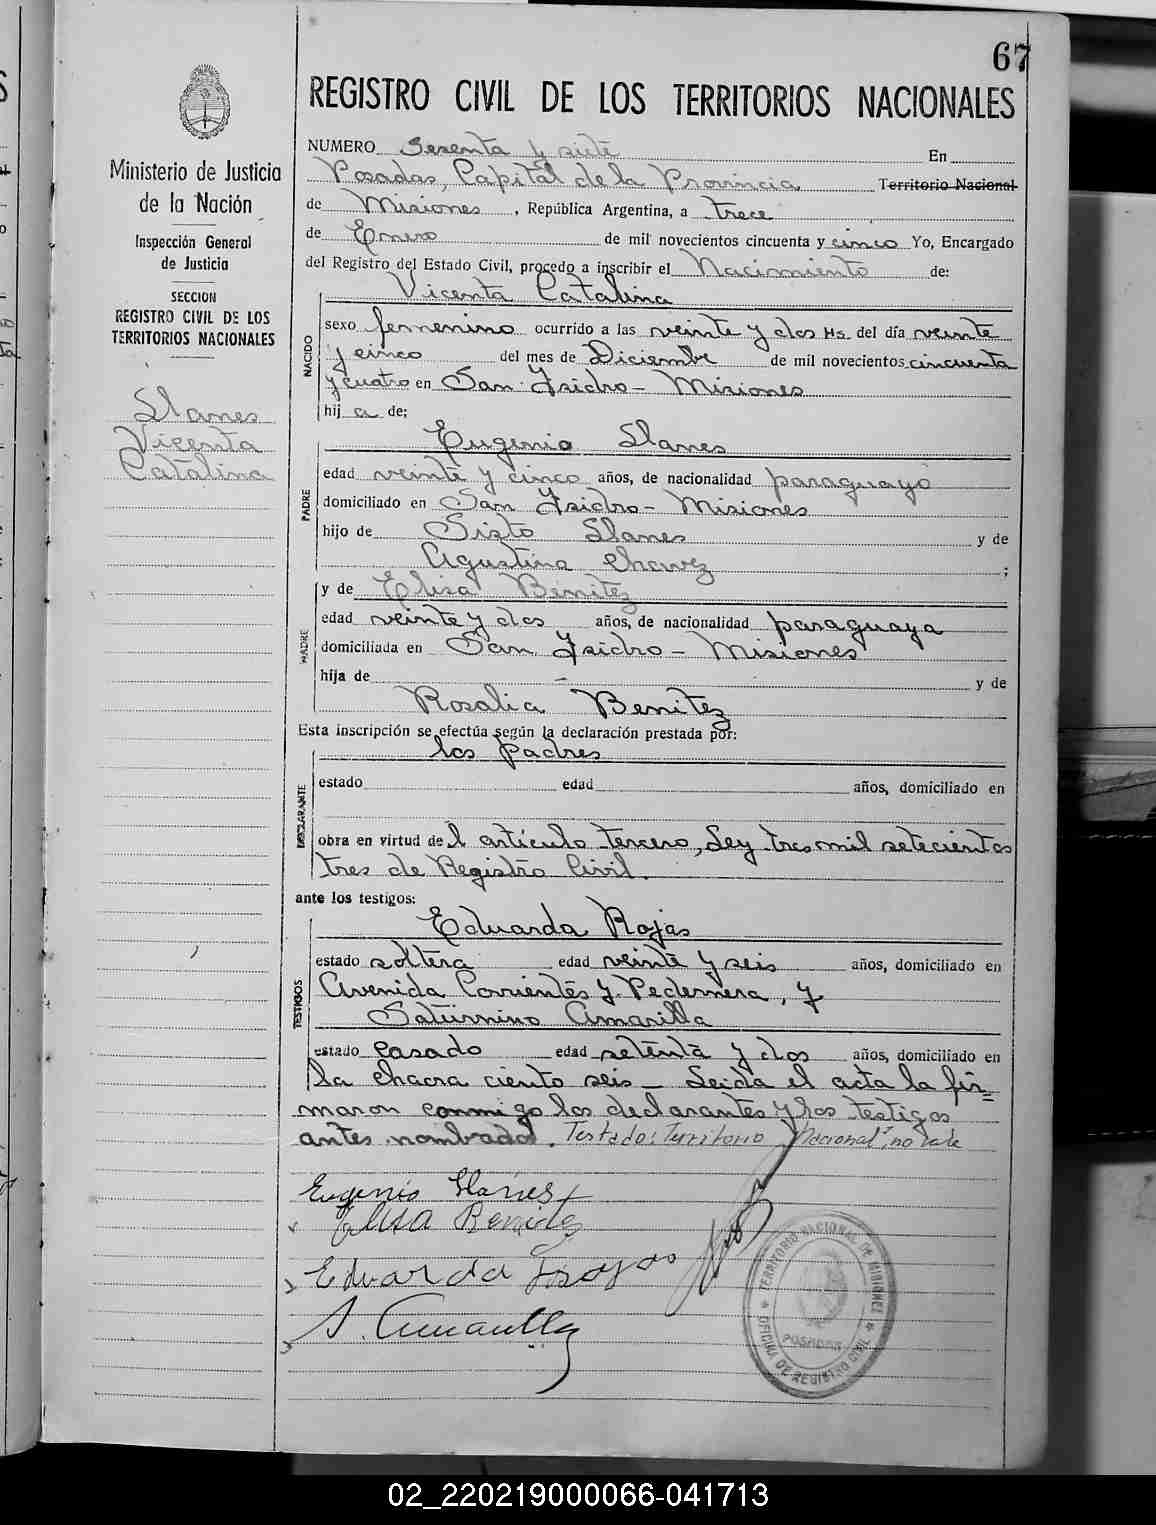 67
REGISTRO CIVIL DE LOS TERRITORIOS NACIONALES
Ministerio de Justicia
de la Nación
Inspección General
de Justicia
SECCION
REGISTRO CIVIL DE LOS
TERRITORIOS NACIONALES
Llanes
Vicenta
Catalina
NUMERO Sesenta y siete En
Posadas, Capital de la Provincia Territorio Nacional
de Misiones, República Argentina, a trece
de Enero de mil novecientos cincuenta y cinco Yo, Encargado
del Registro del Estado Civil, procedo a inscribir el Nacimiento de:
Vicenta Catalina
NACIDO
sexo femenino ocurrido a las veinte y dos Hs. del día veinte
y cinco del mes de Diciembre de mil novecientos cincuenta
y cuatro en San Isidro - Misiones
hij a de;
Eugenio Llanes
PADRE
edad veinte y cinco años, de nacionalidad paraguayo
domiciliado en San Isidro - Misiones
hijo de Sixto Llanes y de
Agustina Chavez ;
y de Elisa Benitez
MADRE
edad veinte y dos años, de nacionalidad paraguaya
domiciliada en San Isidro - Misiones
hija de - y de
Rosalia Benitez
Esta inscripción se efectúa según la declaración prestada por:
los padres
DECLARANTE
estado edad años, domiciliado en
obra en virtud del artículo tercero, Ley tres mil setecientos
tres de Registro Civil.
ante los testigos:
Eduarda Rojas
TESTIGOS
estado soltera edad veinte y seis años, domiciliado en
Avenida Corrientes y Pedernera, y
Saturnino Amarilla
estado casado edad setenta y dos años, domiciliado en
la chacra ciento seis - Leida el acta la fir=
maron conmigo los declarantes y los testigos
antes nombrados. Testado: Territorio Nacional", no vale
Eugenio Llanes
Elisa Benitez
Eduarda Rojas
S. Amarilla
TERRITORIO NACIONAL DE MISIONES
POSADAS
OFICINA DE REGISTRO CIVIL
02_220219000066-041713